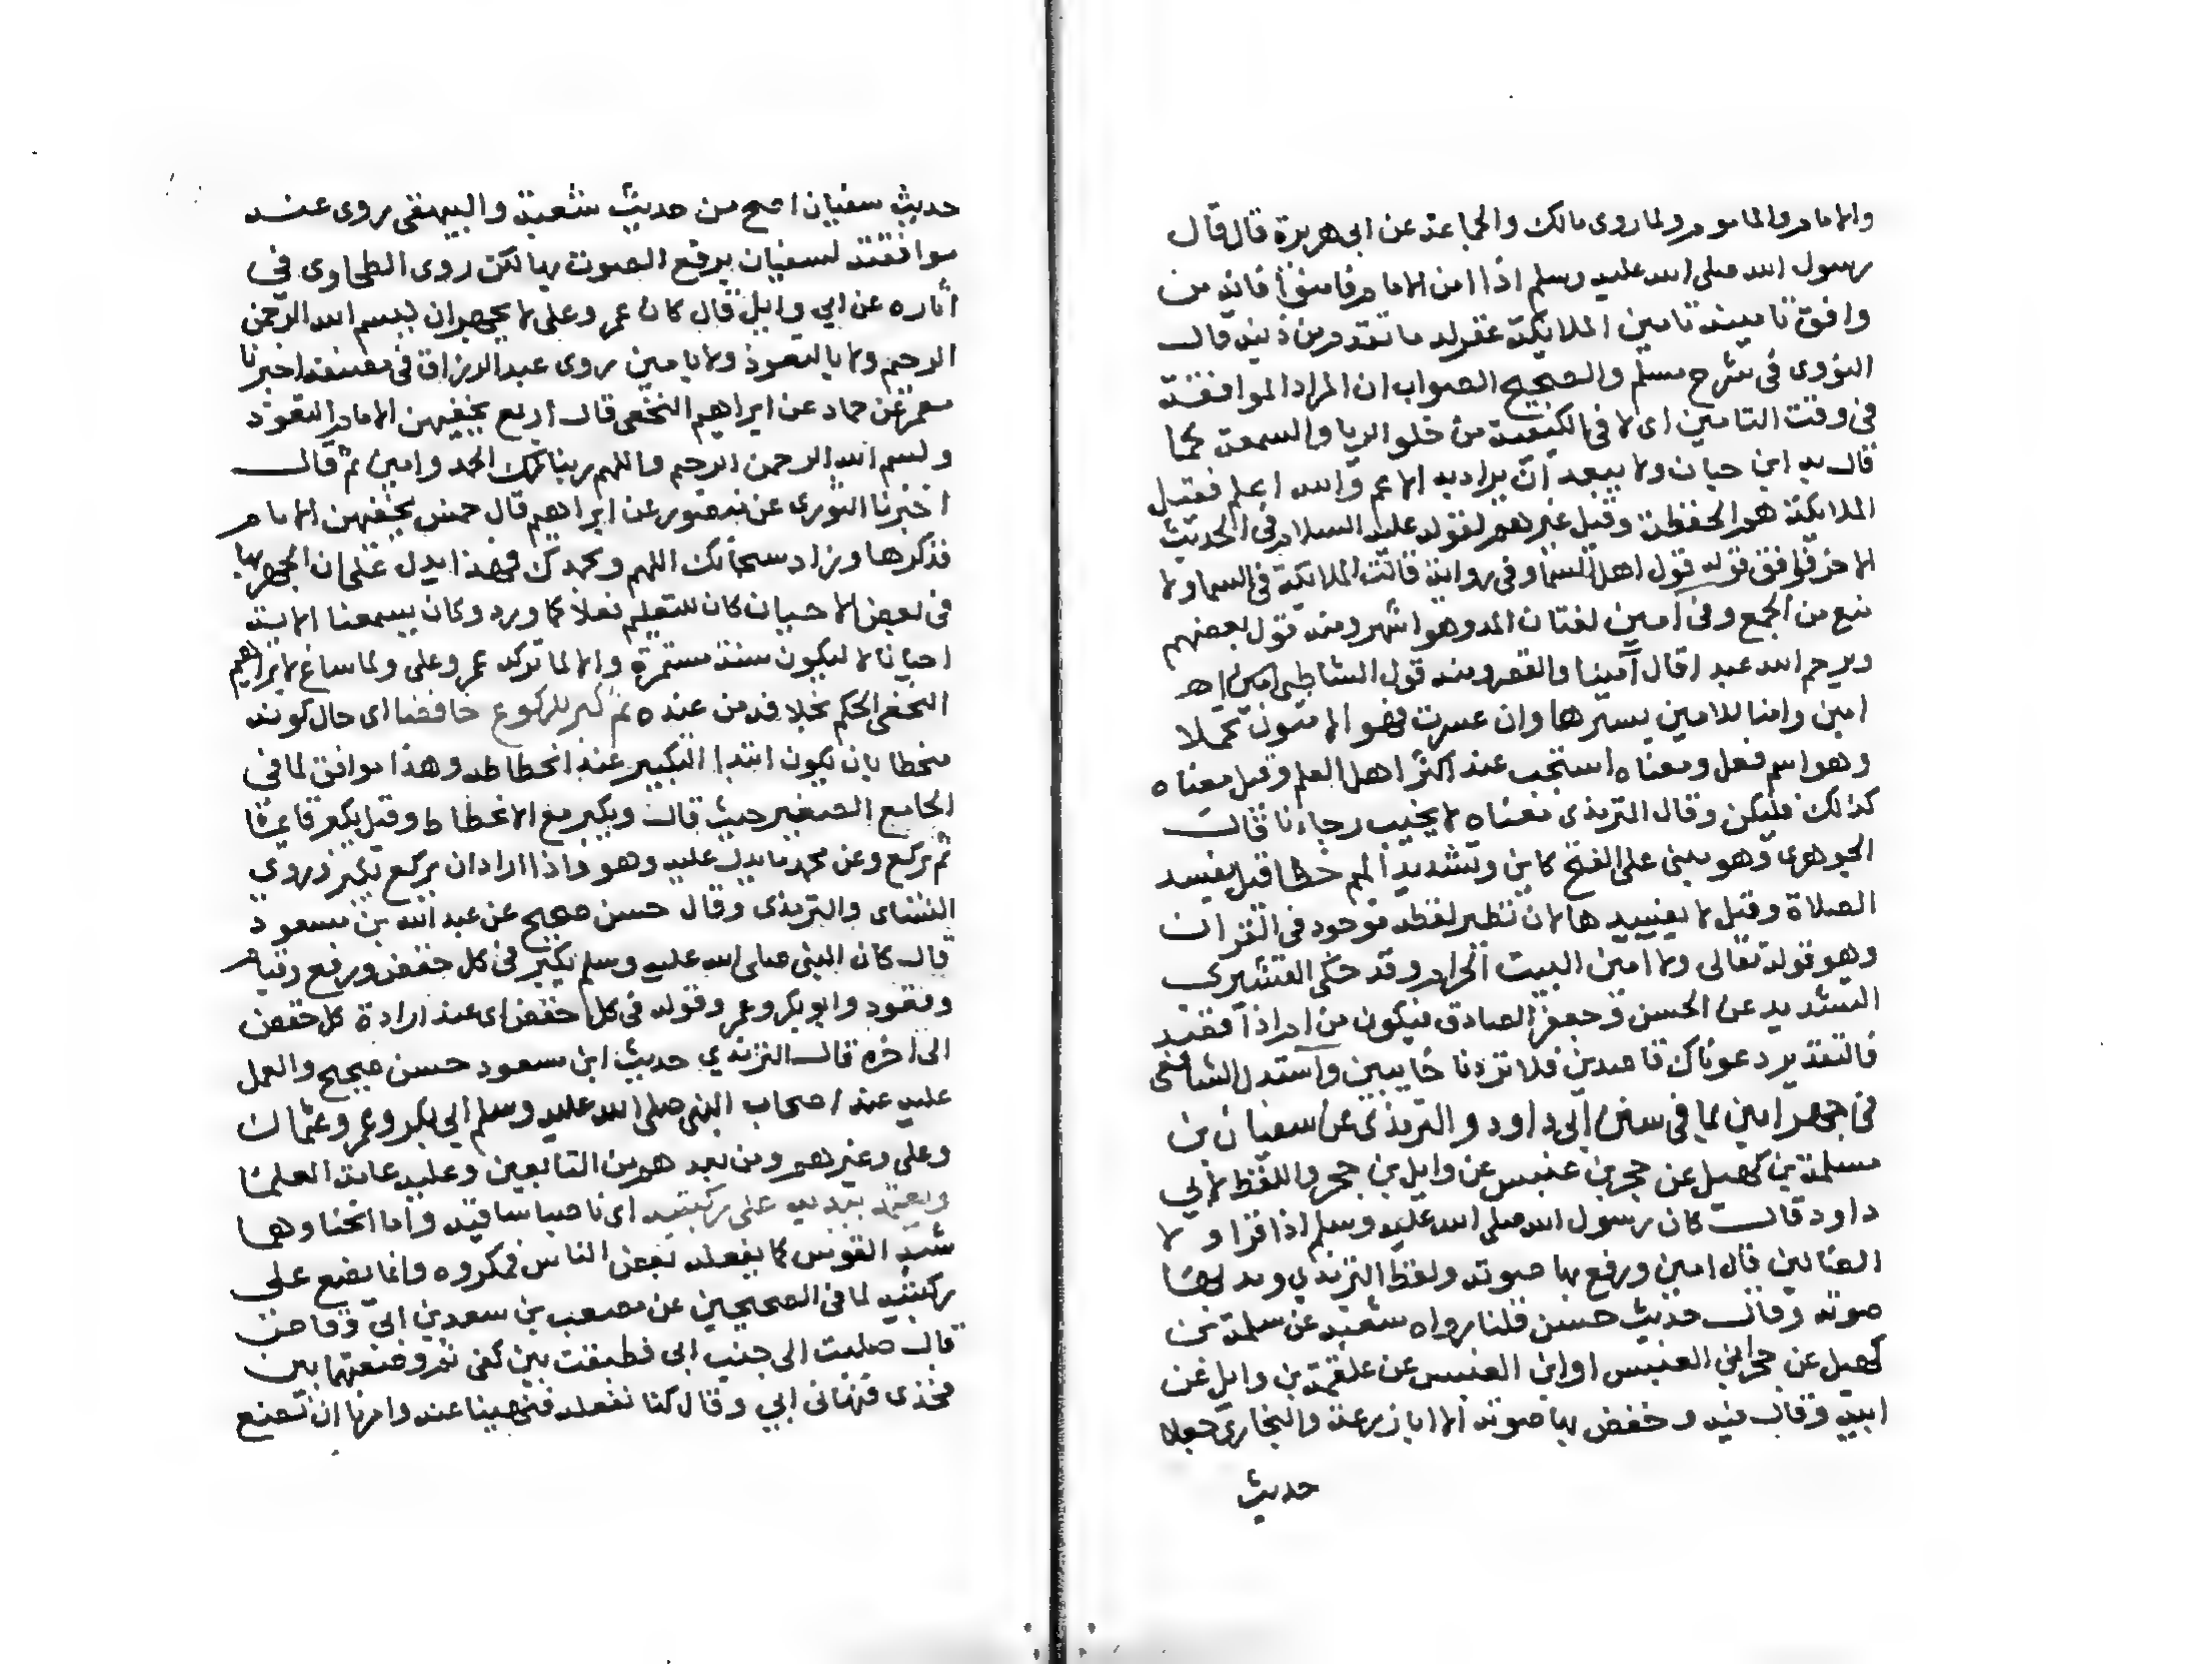 والامام والماموم ولما روى مالك والجماعة عن ابى هريرة قال قال
رسول الله صلى الله عليه وسلم اذا امن الامام فامنوا فانه من
وافق تامينه تامين الملايكة غفر له ما تقدم من ذنبه قال
النووى فى شرح مسلم والصحيح الصواب ان المراد الموافقة
فى وقت التامين اى لا فى الكيفية من خلو الريا والسمعة كما
قال به ابن حبان ولا يبعد ان يراد به الاعم والله اعلم فقيل
الملايكة هم الحفظة وقيل غيرهم لقوله عليه السلام فى الحديث
الاخر فوافق قوله قول اهل السما وفى رواية قالت الملايكة فى السما ولا
منع من الجمع وفى امين لغتان المد وهو اشهر ومنه قول بعضهم
ويرحم الله عبدا قال آمينا والقصر ومنه قول الشاطبى امين اه
امين وامنا للامين بسترها وان عسرت فهو الامون تحملا
وهو اسم فعل ومعناه استجب عند اكثر اهل العلم وقيل معناه
كذلك فليكن وقال الترمذى معناه لا يخيب رجاءنا قال
الجوهرى وهو مبنى على الفتح كاين وتشديد الميم خطا قيل يفسد
الصلاة وقيل لا يفسدها لان نظير لفظه موجود فى القران
وهو قوله تعالى ولا امين البيت الحرام وقد حكى القشيرى
التشديد عن الحسن وجعفر الصادق فيكون من ام اذا قصد
فالتقدير دعوناك قاصدين فلا تردنا خايبين واستدل الشافعى
فى جهر امين بما فى سنن ابى داود والترمذى عن سفيان بن
مسلمة بن كهيل عن حجر بن عنبس عن وايل بن حجر واللفظ لابي
داود قال كان رسول الله صلى الله عليه وسلم اذا قرا ولا
الضالين قال امين ورفع بها صوته ولفظ الترمذى ومد بها
صوته وقال حديث حسن قلنا رواه شعبه عن سلمة بن
كهيل عن حجر ابن العنبس او ابن العنبس عن علقمة بن وايل عن
ابيه وقال فيه وخفض بها صوته الا ابا زرعة والبخارى جعلا
حديث
حديث سفيان اصح من حديث شعبة والبيهقى روى عنه
موافقته لسفيان برفع الصوت بها لكن روى الطحاوى في
آثاره عن ابي وايل قال كان عمر وعلى لا يجهران ببسم الله الرحمن
الرحيم ولا بالتعوذ ولا بامين روى عبد الرزاق فى مصنفه اخبرنا
معمر عن حماد عن ابراهيم النخعى قال اربع يخفيهن الامام التعوذ
وبسم الله الرحمن الرحيم واللهم ربنا لك الحمد وامين ثم قال
اخبرنا الثورى عن منصور عن ابراهيم قال خمس يخفيهن الامام
فذكرها وزاد سبحانك اللهم وبحمدك فهذا يدل على ان الجهر بها
فى بعض الاحيان كان للتعليم نعلا كما ورد وكان يسمعنا الاية
احيانا لا ليكون سنة مستمرة والا لما تركه عمر وعلى ولما ساغ لابراهيم
النخعى الحكم بخلافه من عنده ثم كبر للركوع خافضا اى حال كونه
منحطا بان يكون ابتدا التكبير عند انحطاطه وهذا موافق لما فى
الجامع الصغير حيث قال ويكبر مع الانحطاط وقيل يكبر قايما
ثم يركع وعن محمد ما يدل عليه وهو واذا اراد ان يركع يكبر وروى
النساى والترمذى وقال حسن صحيح عن عبد الله بن مسعود
قال كان النبى صلى الله عليه وسلم يكبر فى كل خفض ورفع وقيام
وقعود وابو بكر وعمر وقوله فى كل خفض اى عند ارادة كل خفض
الى اخره قال الترمذي حديث ابن مسعود حسن صحيح والعمل
عليه عند اصحاب النبى صلى الله عليه وسلم ابي بكر وعمر وعثمان
وعلى وغيرهم ومن بعدهم من التابعين وعليه عامة العلما
ويعتمد بيديه على ركبتيه اى ناصبا ساقيه واما انحناوهما
شبه القوس كما يفعله بعض الناس فمكروه وانما يضع على
ركبتيه لما فى الصحيحين عن مصعب بن سعد بن ابى وقاص
قال صليت الى جنب ابى فطبقت بين كفى ثم وضعتهما بين
فخذى فنهانى ابي وقال كنا نفعله فنهينا عنه وامرنا ان نضع